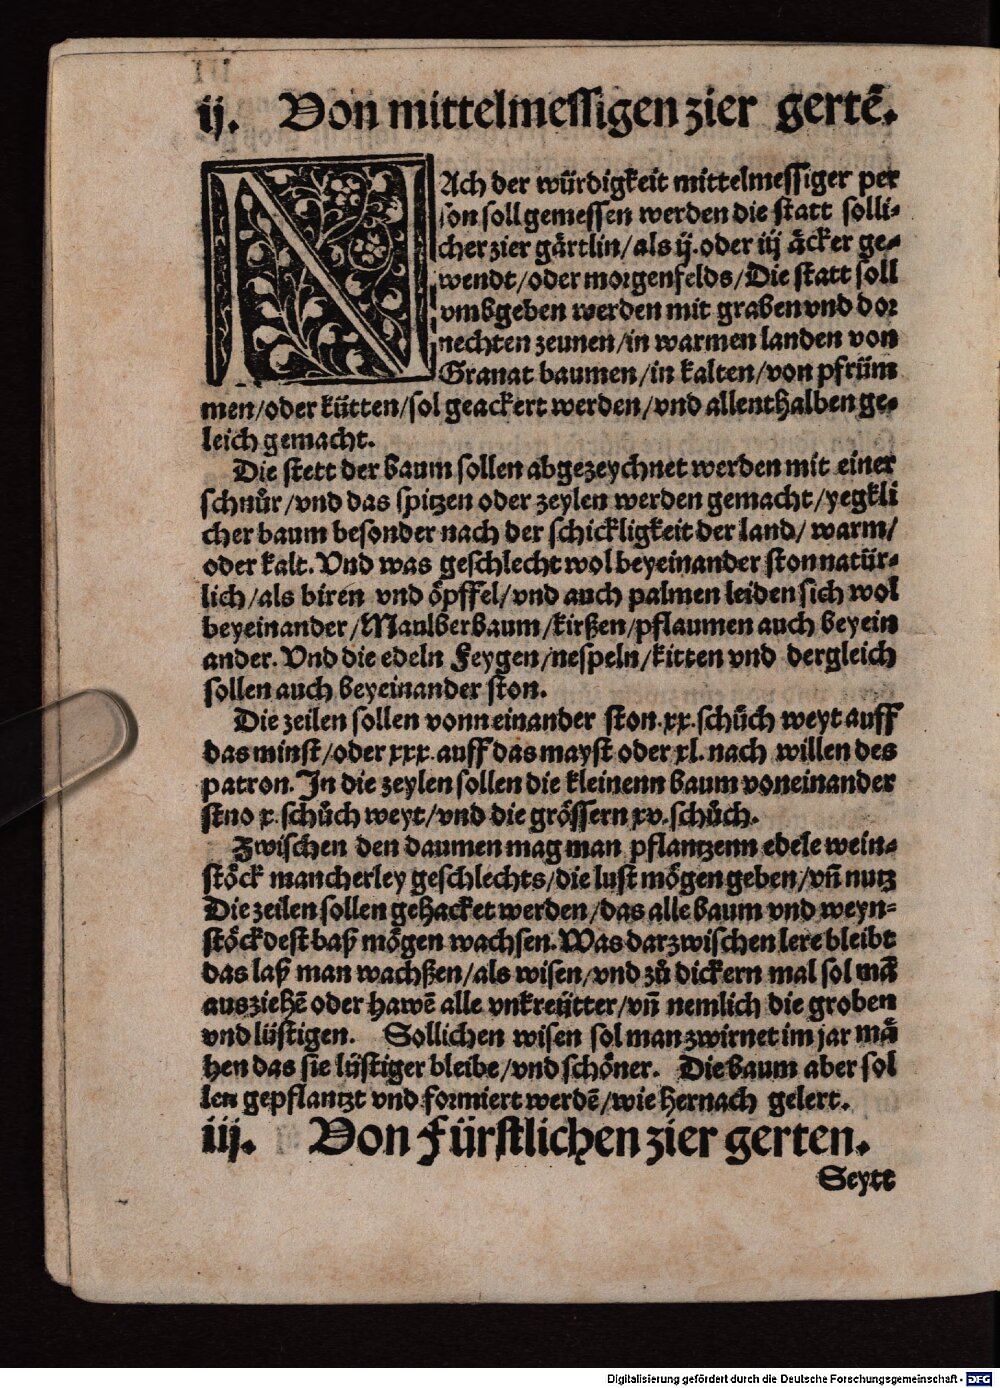 ij. Von mittelmessigen zier gertē.
NAch der würdigkeit mittelmessiger per
son soll gemessen werden die statt solli⸗
cher zier gärtlin/als ij. oder iij äcker ge⸗
wendt/oder morgenfelds/Die statt soll
vmbgeben werden mit graben vnd dor
nechten zeunen/in warmen landen von
Granat baumen/in kalten/von pfrüm
men/oder kütten/sol geackert werden/vnd allenthalben ge⸗
leich gemacht.
Die stett der baum sollen abgezeychnet werden mit einer
schnůr/vnd das spitzen oder zeylen werden gemacht/yegkli
cher baum besonder nach der schickligkeit der land/ warm/
oder kalt. Vnd was geschlecht wol beyeinander ston natür⸗
lich/als biren vnd öpffel/vnd auch palmen leiden sich wol
beyeinander/Maulberbaum/kirßen/pflaumen auch beyein
ander. Vnd die edeln Feygen/nespeln/kitten vnd dergleich
sollen auch beyeinander ston.
Die zeilen sollen vonn einander ston .xx. schůch weyt auff
das minst/oder xxx. auff das mayst oder xl. nach willen des
patron. In die zeylen sollen die kleinenn baum voneinander
stno x. schůch weyt/vnd die grössern xv. schůch.
Zwischen den daumen mag man pflantzenn edele wein⸗
stöck mancherley geschlechts/die lust mögen geben/vñ nutz
Die zeilen sollen gehacket werden/das alle baum vnd weyn⸗
stöck dest baß mögen wachsen. Was darzwischen lere bleibt
das laß man wachßen/als wisen/vnd zů dickern mal sol mā
ausziehē oder hawē alle vnkreütter/vñ nemlich die groben
vnd lüstigen. Sollichen wisen sol man zwirnet im jar mä
hen das sie lüstiger bleibe/vnd schöner. Die baum aber sol
len gepflantzt vnd formiert werdē/wie hernach gelert.
iij. Von Fürstlichen zier gerten.
Seytt
Digitalisierung gefördert durch die Deutsche Forschungsgemeinschaft - DFG